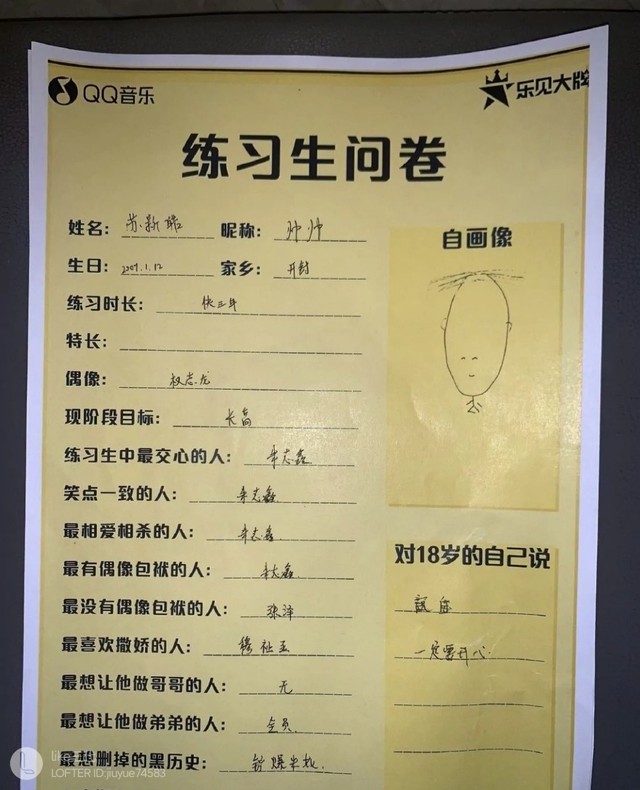 QQ音乐
乐见大牌
练习生问卷
姓名：苏新皓 昵称：帅帅
生日：2007.1.12 家乡：开封
练习时长：快三年
特长：
偶像：权志龙
现阶段目标：长高
练习生中最交心的人：朱志鑫
笑点一致的人：朱志鑫
最相爱相杀的人：朱志鑫
最有偶像包袱的人：朱志鑫
最没有偶像包袱的人：张泽
最喜欢撒娇的人：穆祉丞
最想让他做哥哥的人：无
最想让他做弟弟的人：全员
最想删掉的黑历史：
自画像
对18岁的自己说
一定要开心
LOFTER ID:jiuyue74583